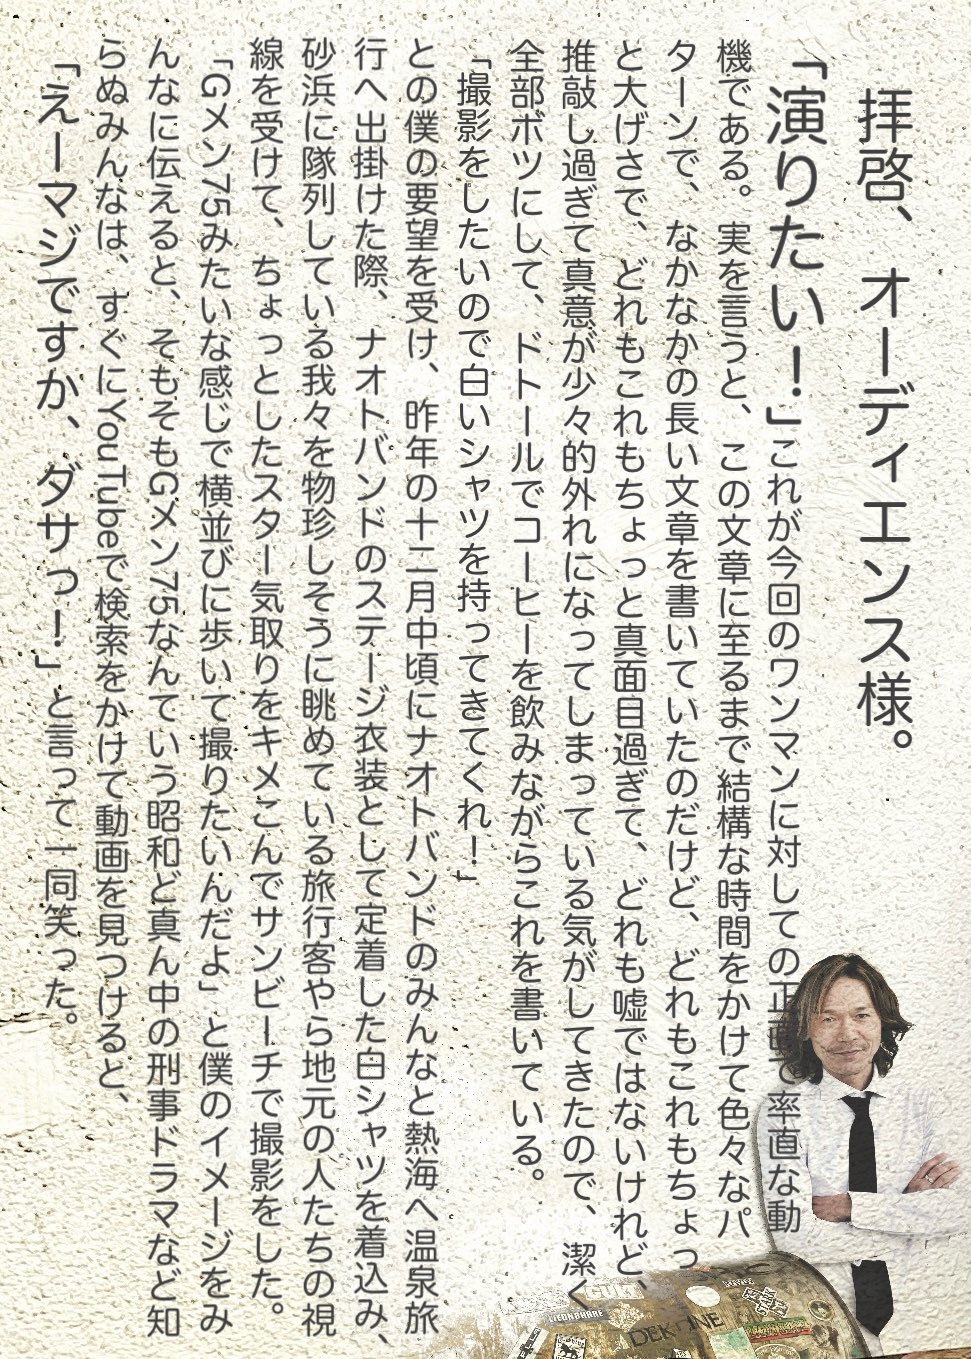 拝啓、オーディエンス様。
「演りたい！」これが今回のワンマンに対しての正直で率直な動
機である。実を言うと、この文章に至るまで結構な時間をかけて色々なパ
ターンで、なかなかの長い文章を書いていたのだけど、どれもこれもちょっ
と大げさで、どれもこれもちょっと真面目過ぎて、どれも嘘ではないけれど、
推敲し過ぎて真意が少々的外れになってしまっている気がしてきたので、潔く
全部ボツにして、ドトールでコーヒーを飲みながらこれを書いている。
「撮影をしたいので白いシャツを持ってきてくれ！」
との僕の要望を受け、昨年の十二月中頃にナオトバンドのみんなと熱海へ温泉旅
行へ出掛けた際、ナオトバンドのステージ衣装として定着した白シャツを着込み、
砂浜に隊列している我々を物珍しそうに眺めている旅行客やら地元の人たちの視
線を受けて、ちょっとしたスター気取りをキメこんでサンビーチで撮影をした。
「Gメン75みたいな感じで横並びに歩いて撮りたいんだよ」と僕のイメージをみ
んなに伝えると、そもそもGメン75なんていう昭和ど真ん中の刑事ドラマなど知
らぬみんなは、すぐにYouTubeで検索をかけて動画を見つけると、
「えーマジですか、ダサっ！」と言って一同笑った。
CULT
LIEONSHARE
DEKLINE